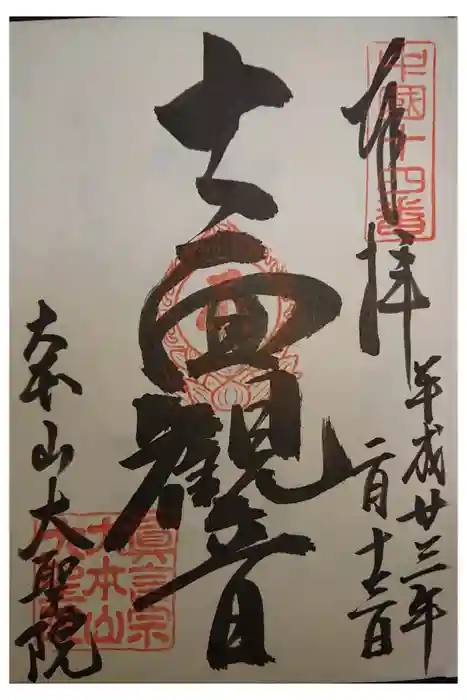 中國十四番
奉拝
平成廿三年
二月
十一面觀音
大本山大聖院
眞言宗
大本山
大聖院